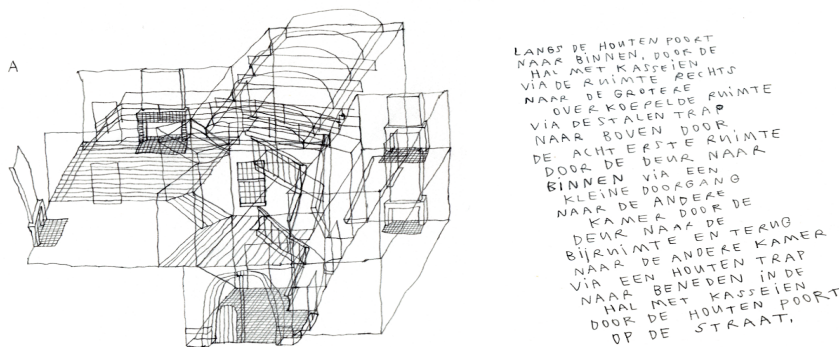 A
LANGS DE HOUTEN POORT
NAAR BINNEN, DOOR DE
HAL MET KASSEIEN
VIA DE RUIMTE RECHTS
NAAR DE GROTERE
OVERKOEPELDE RUIMTE
VIA DE STALEN TRAP
NAAR BOVEN DOOR
DE ACHTERSTE RUIMTE
DOOR DE DEUR NAAR
BINNEN VIA EEN
KLEINE DOORGANG
NAAR DE ANDERE
KAMER DOOR DE
DEUR NAAR DE
BIJRUIMTE EN TERUG
NAAR DE ANDERE KAMER
VIA EEN HOUTEN TRAP
NAAR BENEDEN IN DE
HAL MET KASSEIEN
DOOR DE HOUTEN POORT
OP DE STRAAT.